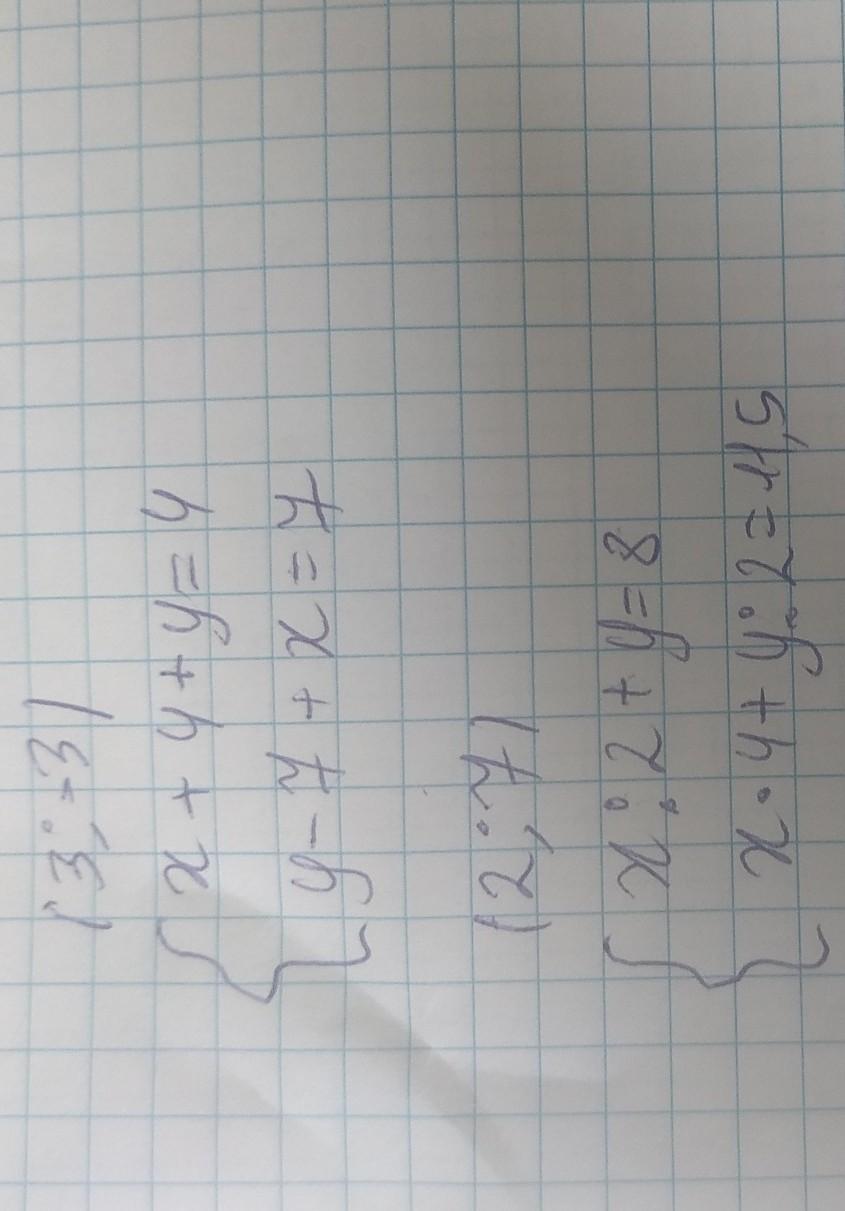 (3; -3)
{ x + 4 + y = 4
y - 7 + x = 7
(2; 7)
{ x : 2 + y = 8
x · 4 + y : 2 = 11,5